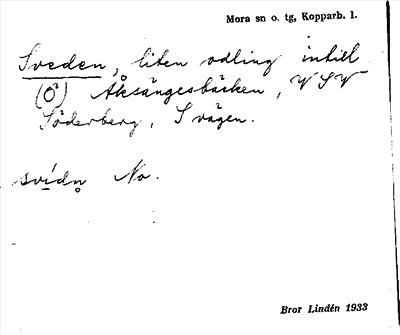 Mora sn o. tg, Kopparb. l.
Sveden, liten odling intill
(Ö) Åksängesbäcken, VSV
Söderberg, S vägen.
svídn̥ No.
Bror Lindén 1933